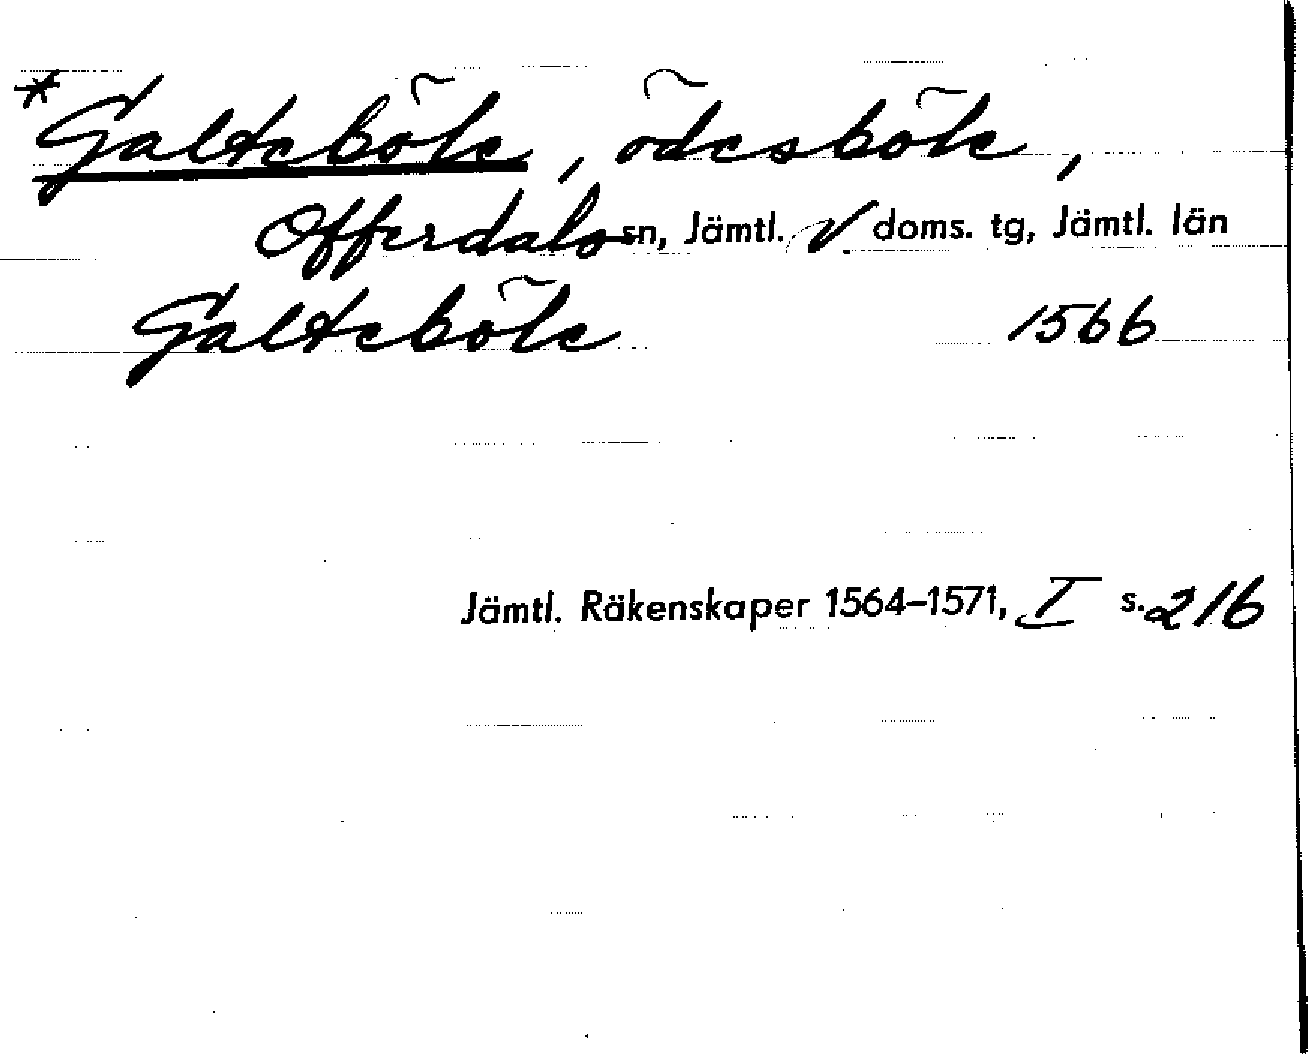 *Galteböle, ödesböle,
Offerdals sn, Jämtl. V doms. tg, Jämtl. län
Galteböle 1566
Jämtl. Räkenskaper 1564–1571, I s. 216